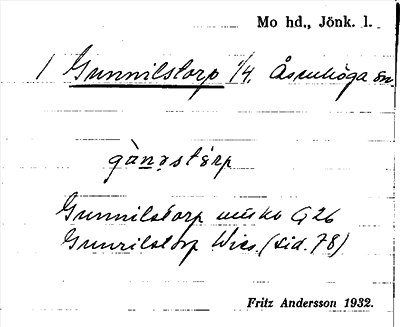 Mo hd., Jönk. l.
1 Gunnilstorp 1/4. Åsenhöga sn.
gànəstɵrp
Gunnilstorp G 26
Gunrilstorp Wies. (sid. 78)
Fritz Andersson 1932.